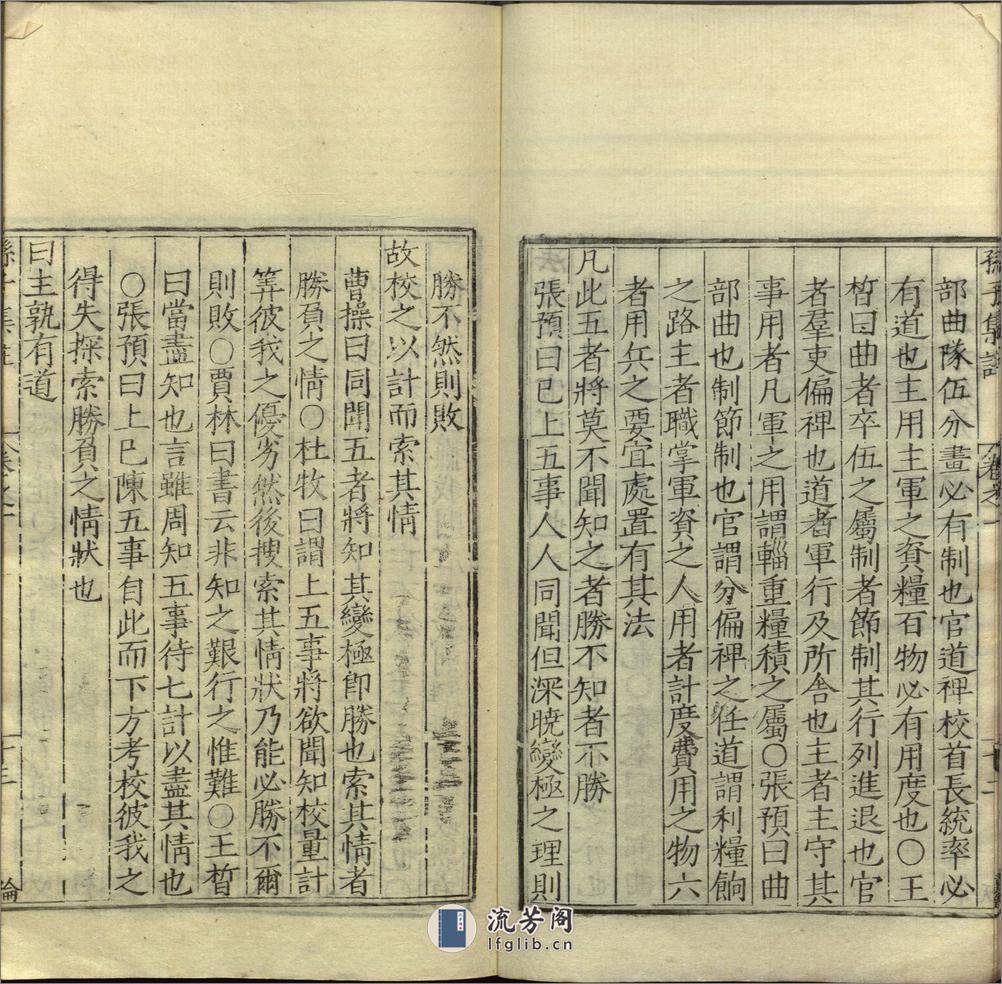 孫子集註
卷之一
十二
部曲隊伍分畫必有制也官道裨校首長統率必
有道也主用主軍之資糧百物必有用度也〇王
晳曰曲者卒伍之屬制者節制其行列進退也官
者羣吏偏裨也道者軍行及所舍也主者主守其
事用者凡軍之用謂輜重糧積之屬〇張預曰曲
部曲也制節制也官謂分偏裨之任道謂利糧餉
之路主者職掌軍資之人用者計度費用之物六
者用兵之要宜處置有其法
凡此五者將莫不聞知之者勝不知者不勝
張預曰已上五事人人同聞但深曉變極之理則
勝不然則敗
故校之以計而索其情
曹操曰同聞五者將知其變極即勝也索其情者
勝負之情〇杜牧曰謂上五事將欲聞知校量計
筭彼我之優劣然後搜索其情狀乃能必勝不爾
則敗〇賈林曰書云非知之艱行之惟難〇王晳
曰當盡知也言雖周知五事待七計以盡其情也
〇張預曰上已陳五事自此而下方考校彼我之
得失探索勝負之情狀也
曰主孰有道
孫子集註
卷之一
十三
流芳阁
lfglib.cn